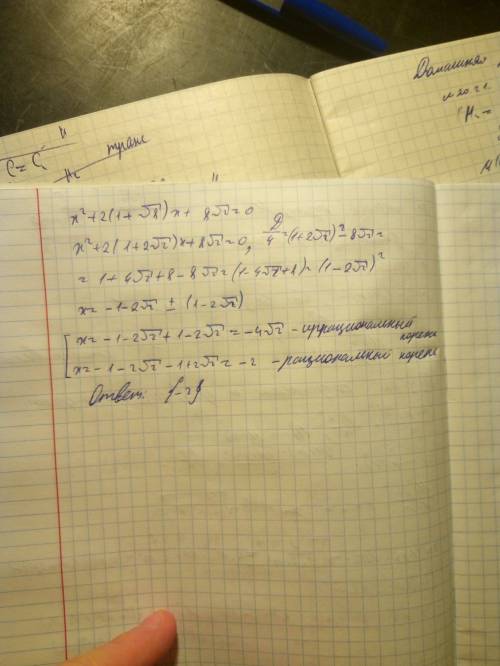 Домашняя
C = C
H
H₂
транс
x²+2(1+√8)x+8√2=0
x²+2(1+2√2)x+8√2=0, D/4=(1+2√2)²-8√2=
=1+4√2+8-8√2=(1-4√2+8)=(1-2√2)²
x=-1-2√2±(1-2√2)
[x=-1-2√2+1-2√2=-4√2 - иррациональный корень
x=-1-2√2-1+2√2=-2 - рациональный корень
Ответ: {-2}